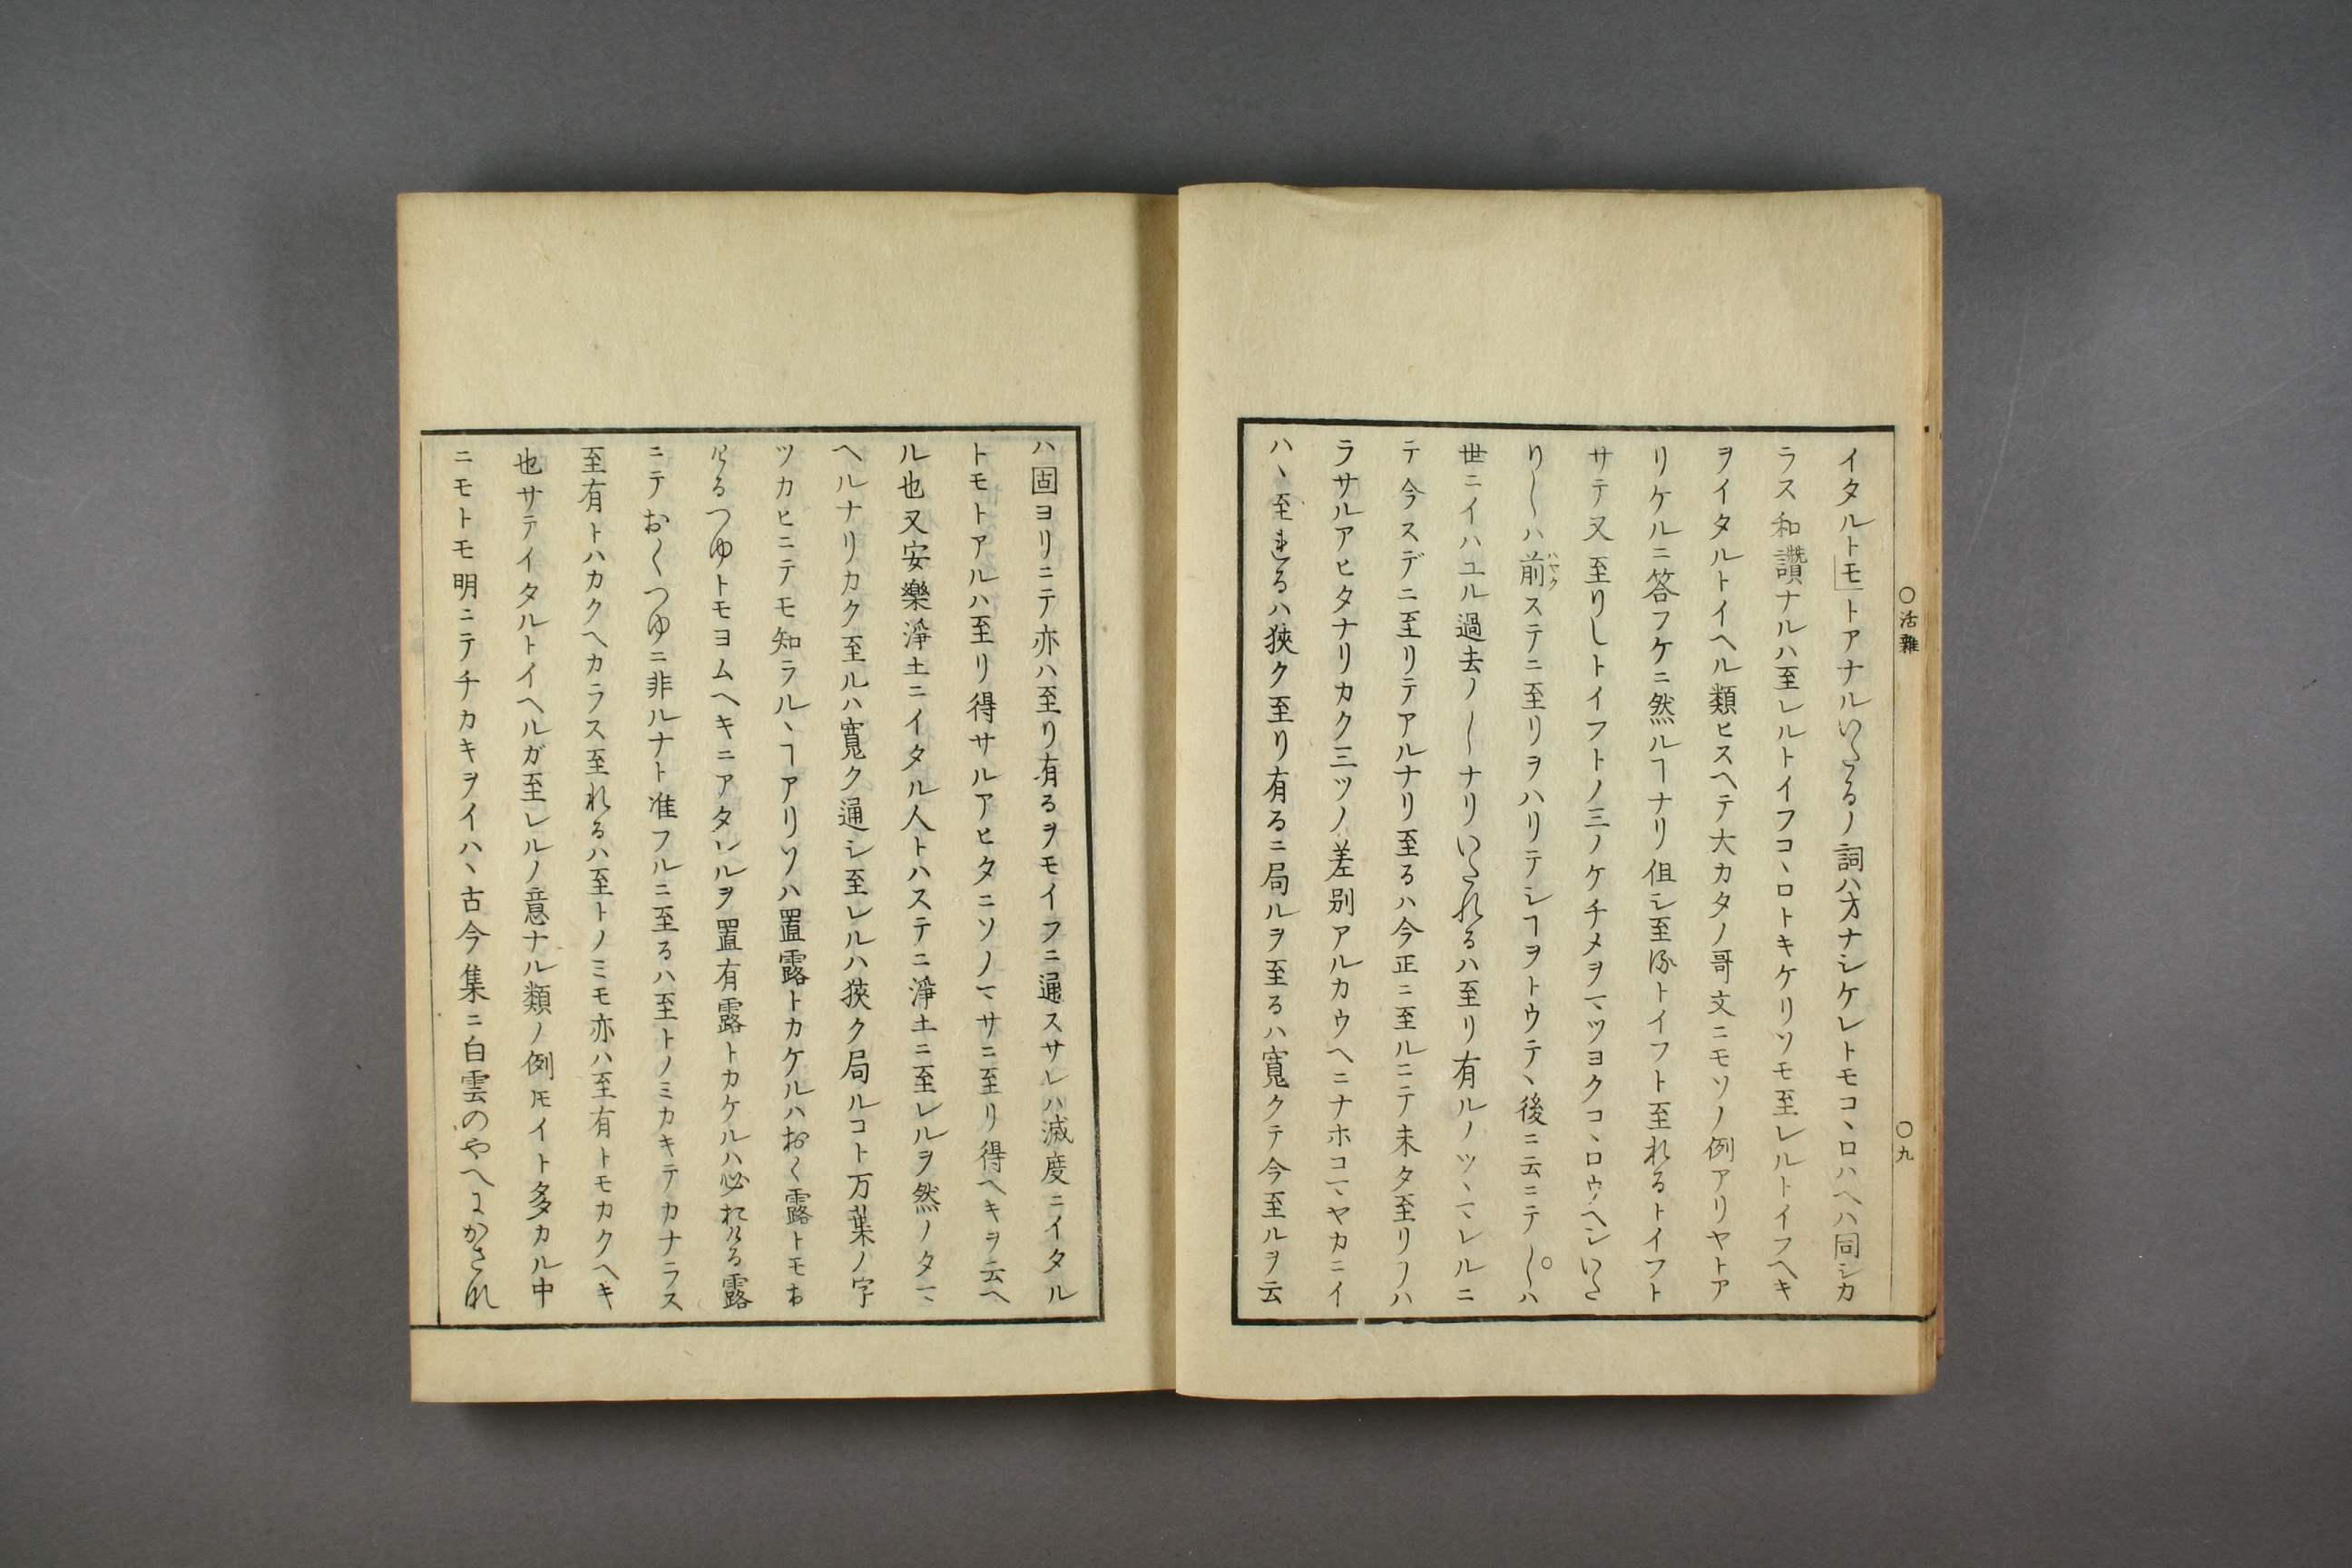 ○活雜
○九
イタルト「モ」トアナルいたるノ詞ハ方ナシケレトモコヽロハヘハ同シカ
ラス和讃ナルハ至レルトイフコヽロトキケリソモ至レルトイフヘキ
ヲイタルトイヘル類ヒスヘテ大カタノ哥文ニモソノ例アリヤトア
リケルニ答フケニ然ルヿナリ但シ至るトイフト至れるトイフト
サテ又至りしトイフトノ三ノケチメヲマツヨクコヽロウヘシいた
り〳〵ハ前ハヤクステニ至リヲハリテシヿヲトウテヽ後ニ云ニテ〳〵ハ
世ニイハユル過去ノ〳〵ナリいたれるハ至リ有ルノツヽマレルニ
テ今スデニ至リテアルナリ至るハ今正ニ至ルニテ未タ至リハ
ラサルアヒタナリカク三ツノ差別アルカウヘニナホコマヤカニイ
ハヽ至れるハ狹ク至り有るニ局ルヲ至るハ寛クテ今至ルヲ云
ハ固ヨリニテ亦ハ至り有るヲモイフニ通スサレハ滅度ニイタル
トモトアルハ至リ得サルアヒタニソノマサニ至リ得ヘキヲ云ヘ
ル也又安樂淨土ニイタル人トハステニ淨土ニ至レルヲ然ノタマ
ヘルナリカク至ルハ寛ク通シ至レルハ狹ク局ルコト万葉ノ字
ツカヒニテモ知ラルヽヿアリソハ置露トカケルハおく露トモお
けるつゆトモヨムヘキニアタレルヲ置有露トカケルハ必おける露
ニテおくつゆニ非ルナト准フルニ至るハ至トノミカキテカナラス
至有トハカクヘカラス至れるハ至トノミモ亦ハ至有トモカクヘキ
也サテイタルトイヘルガ至レルノ意ナル類ノ例𪜈イト多カル中
ニモトモ明ニテチカキヲイハヽ古今集ニ白雲のやへにかさなれ